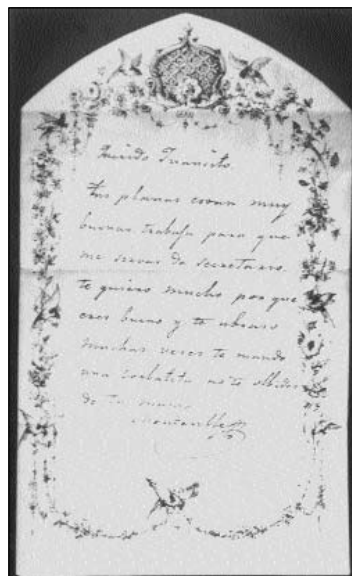 Querido Juancito
tus planas estan muy
buenas trabaja para que
me sirvas de secretario.
te quiero mucho porque
eres bueno y te abraso
muchas veces te mando
una corbatita no te olbides
de tu